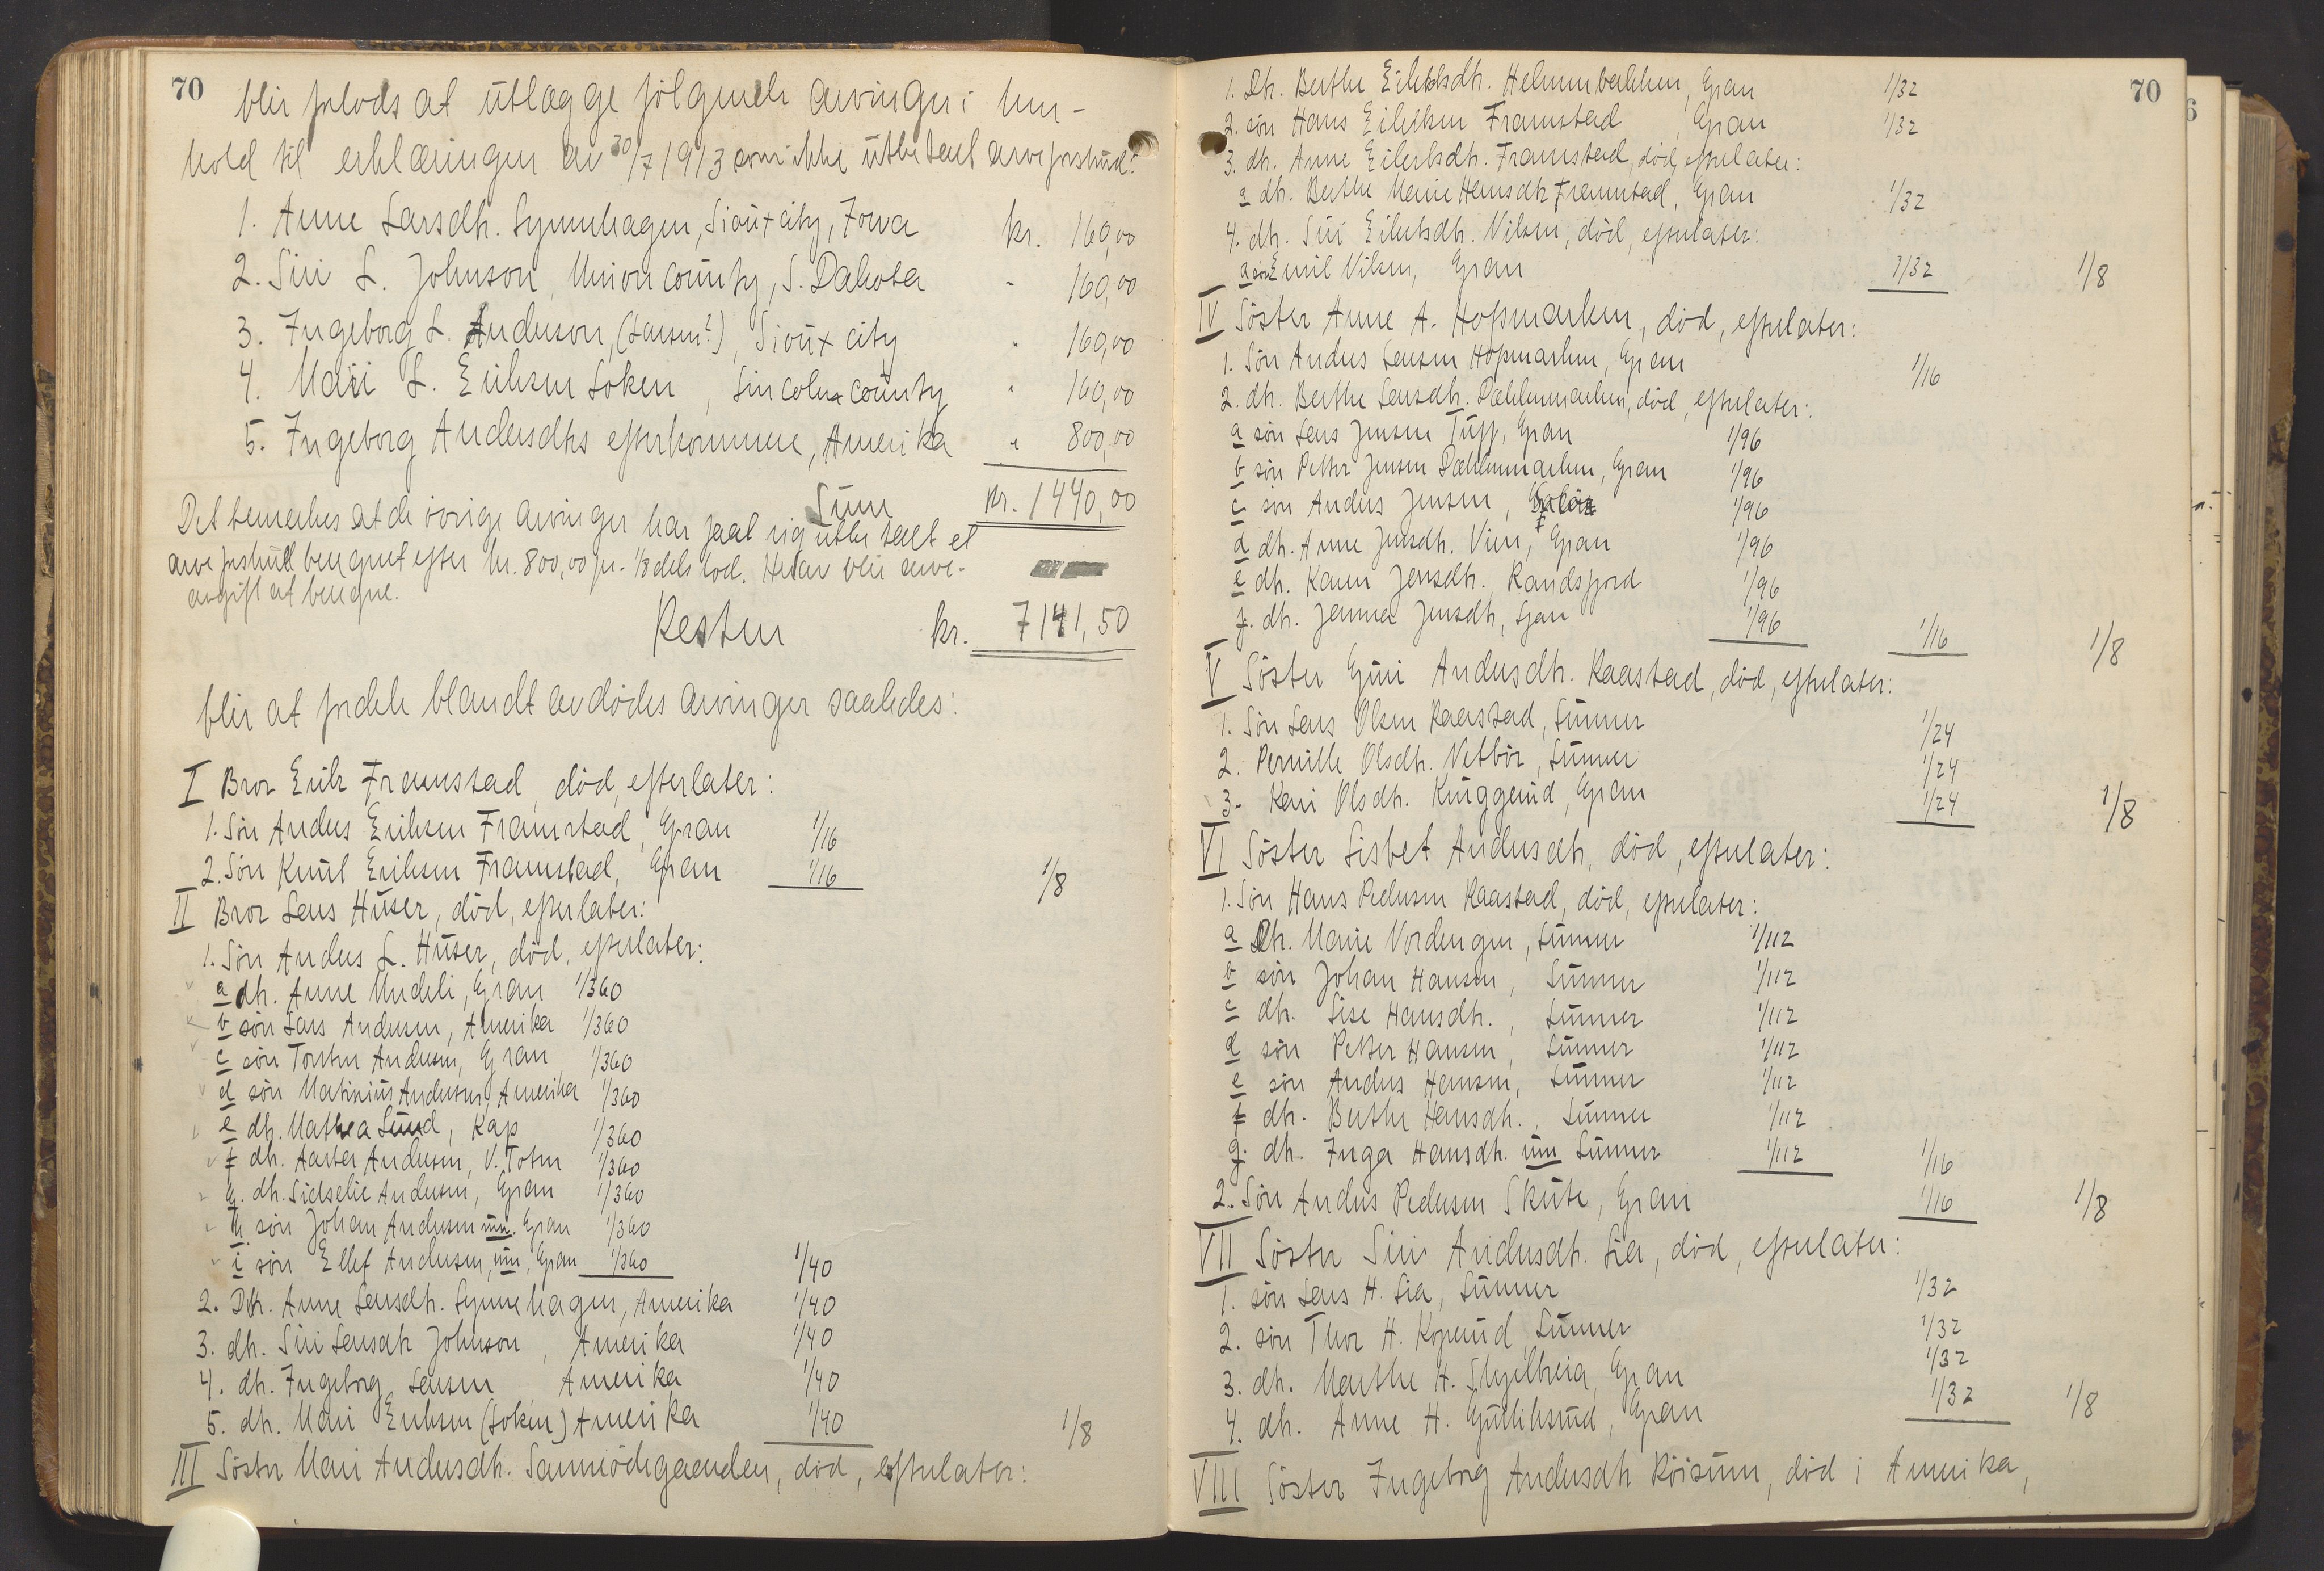 70
blir forlods at utlægge følgende arvinger i hen-
hold til erklæringen av 30/7 1913 som ikke utbetalt arveforskud:
1. Anne Larsdtr. Synnehagen, Sioux city, Iowa kr. 160,00
2. Siri L. Johnson, Union county, S. Dakota - 160,00
3. Ingeborg L. Anderson, (Larsen?), Sioux city " 160,00
4. Mari L. Eriksen Loken, Lincoln county " 160,00
5. Ingeborg Andersdtrs efterkommere, Amerika " 800,00
Sum kr. 1440,00
Det bemerkes at de øvrige arvinger har faat sig utbetalt et
arveforskud beregnet efter kr. 800,00 pr. 1/8 dels lod. Herav blir arve-
avgift at beregne.
Resten kr. 7141,50
blir at fordele blandt avdødes arvinger saaledes:
I Bror Erik Framstad, død, efterlater:
1. Søn Anders Eriksen Framstad, Gran 1/16
2. Søn Knut Eriksen Framstad, Gran 1/16 1/8
II Bror Lars Huser, død, efterlater:
1. Søn Anders L. Huser, død, efterlater:
a dtr. Anne Undeli, Gran 1/360
b søn Lars Andersen, Amerika 1/360
c søn Torsten Andersen, Gran 1/360
d søn Martinius Andersen, Amerika 1/360
e dtr. Mathea Lund, Kap 1/360
f dtr. Aasta Andersen, V. Toten 1/360
g. dtr. Sidselie Andersen, Gran 1/360
h søn Johan Andersen um. Gran 1/360
i søn Ellef Andersen, um, Gran 1/360 1/40
2. Dtr. Anne Larsdtr. Synnehagen, Amerika 1/40
3. dtr. Siri Larsdtr Johnson, Amerika 1/40
4. dtr. Ingeborg Larsen, Amerika 1/40
5. dtr. Mari Eriksen (Loken) Amerika 1/40 1/8
III Søster Mari Andersdtr. Sanneødegaarden, død, efterlater:
70
1. Dtr. Berthe Eilertsdtr. Helmenbakken, Gran 1/32
2. søn Hans Eilertsen Framstad, Gran 1/32
3. dtr. Anne Eilertsdtr. Framstad, død, efterlater:
a dtr. Berthe Marie Hansdtr Framstad, Gran 1/32
4. dtr. Siri Eilertsdtr. Vilsen, død, efterlater:
a søn Emil Vilsen, Gran 1/32 1/8
IV Søster Anne A. Hofsmarken, død, efterlater:
1. Søn Anders Larsen Hofsmarken, Gran 1/16
2. dtr. Berthe Larsdtr. Dæhlenmarken, død, efterlater:
a søn Lars Jensen Tuff, Gran 1/96
b søn Petter Jensen Dæhlenmarken, Gran 1/96
c søn Anders Jensen, 1/96
d dtr. Anne Jensdtr. Vien, Gran 1/96
e dtr. Karen Jensdtr. Randsfjord 1/96
f. dtr. Jenna Jensdtr, Gran 1/96 1/16 1/8
V Søster Guri Andersdtr. Kaastad, død, efterlater:
1. Søn Lars Olsen Kaastad, Lunner 1/24
2. Pernille Olsdtr. Vetbør, Lunner 1/24
3. Kari Olsdtr. Kinggerud, Gran 1/24 1/8
VI Søster Lisbet Andersdtr, død, efterlater:
1. Søn Hans Pedersen Kaastad, død, efterlater:
a Dtr. Marie Vordengen, Lunner 1/112
b søn Johan Hansen, Lunner 1/112
c dtr. Lise Hansdtr., Lunner 1/112
d søn Petter Hansen, Lunner 1/112
e søn Anders Hansen, Lunner 1/112
f dtr. Berthe Hansdtr., Lunner 1/112
g. dtr. Inga Hansdtr. um Lunner 1/112 1/16
2. Søn Anders Pedersen Skute, Gran 1/16 1/8
VII Søster Siri Andersdtr. Lia, død, efterlater:
1. søn Lars H. Lia, Lunner 1/32
2. søn Thor H. Koperud, Lunner 1/32
3. dtr. Marthe H. Skjelbreia, Gran 1/32
4. dtr. Anne H. Gullihsrud, Gran 1/32 1/8
VIII Søster Ingeborg Andersdtr Røisum, død i Amerika,